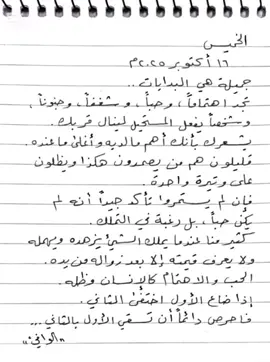 الخميس
١٦ أكتوبر ٢٠٢٥م
جميلة هي البدايات ..
تجد اهتماماً، وحباً، وشغفاً، وجنوناً،
وشخصاً يفعل المستحيل لينال قربك.
يشعرك بأنك أهم مالديه وأغلى ماعنده.
قليلون هم من يصمدون هكذا ويظلون
على وتيرة واحدة.
فإن لم يستمروا تأكد جيداً أنه لم
يكن حباً، بل رغبة في التملك.
كثير منا عندما يملك الشيئ يزهده ويهمله
ولا يعرف قيمته إلا بعد زواله من يده.
الحب والاهتمام كالإنسان وظله.
إذا ضاع الأول اختفى الثاني.
فاحرص دائماً أن تسقي الأول بالثاني...
"الوافي"